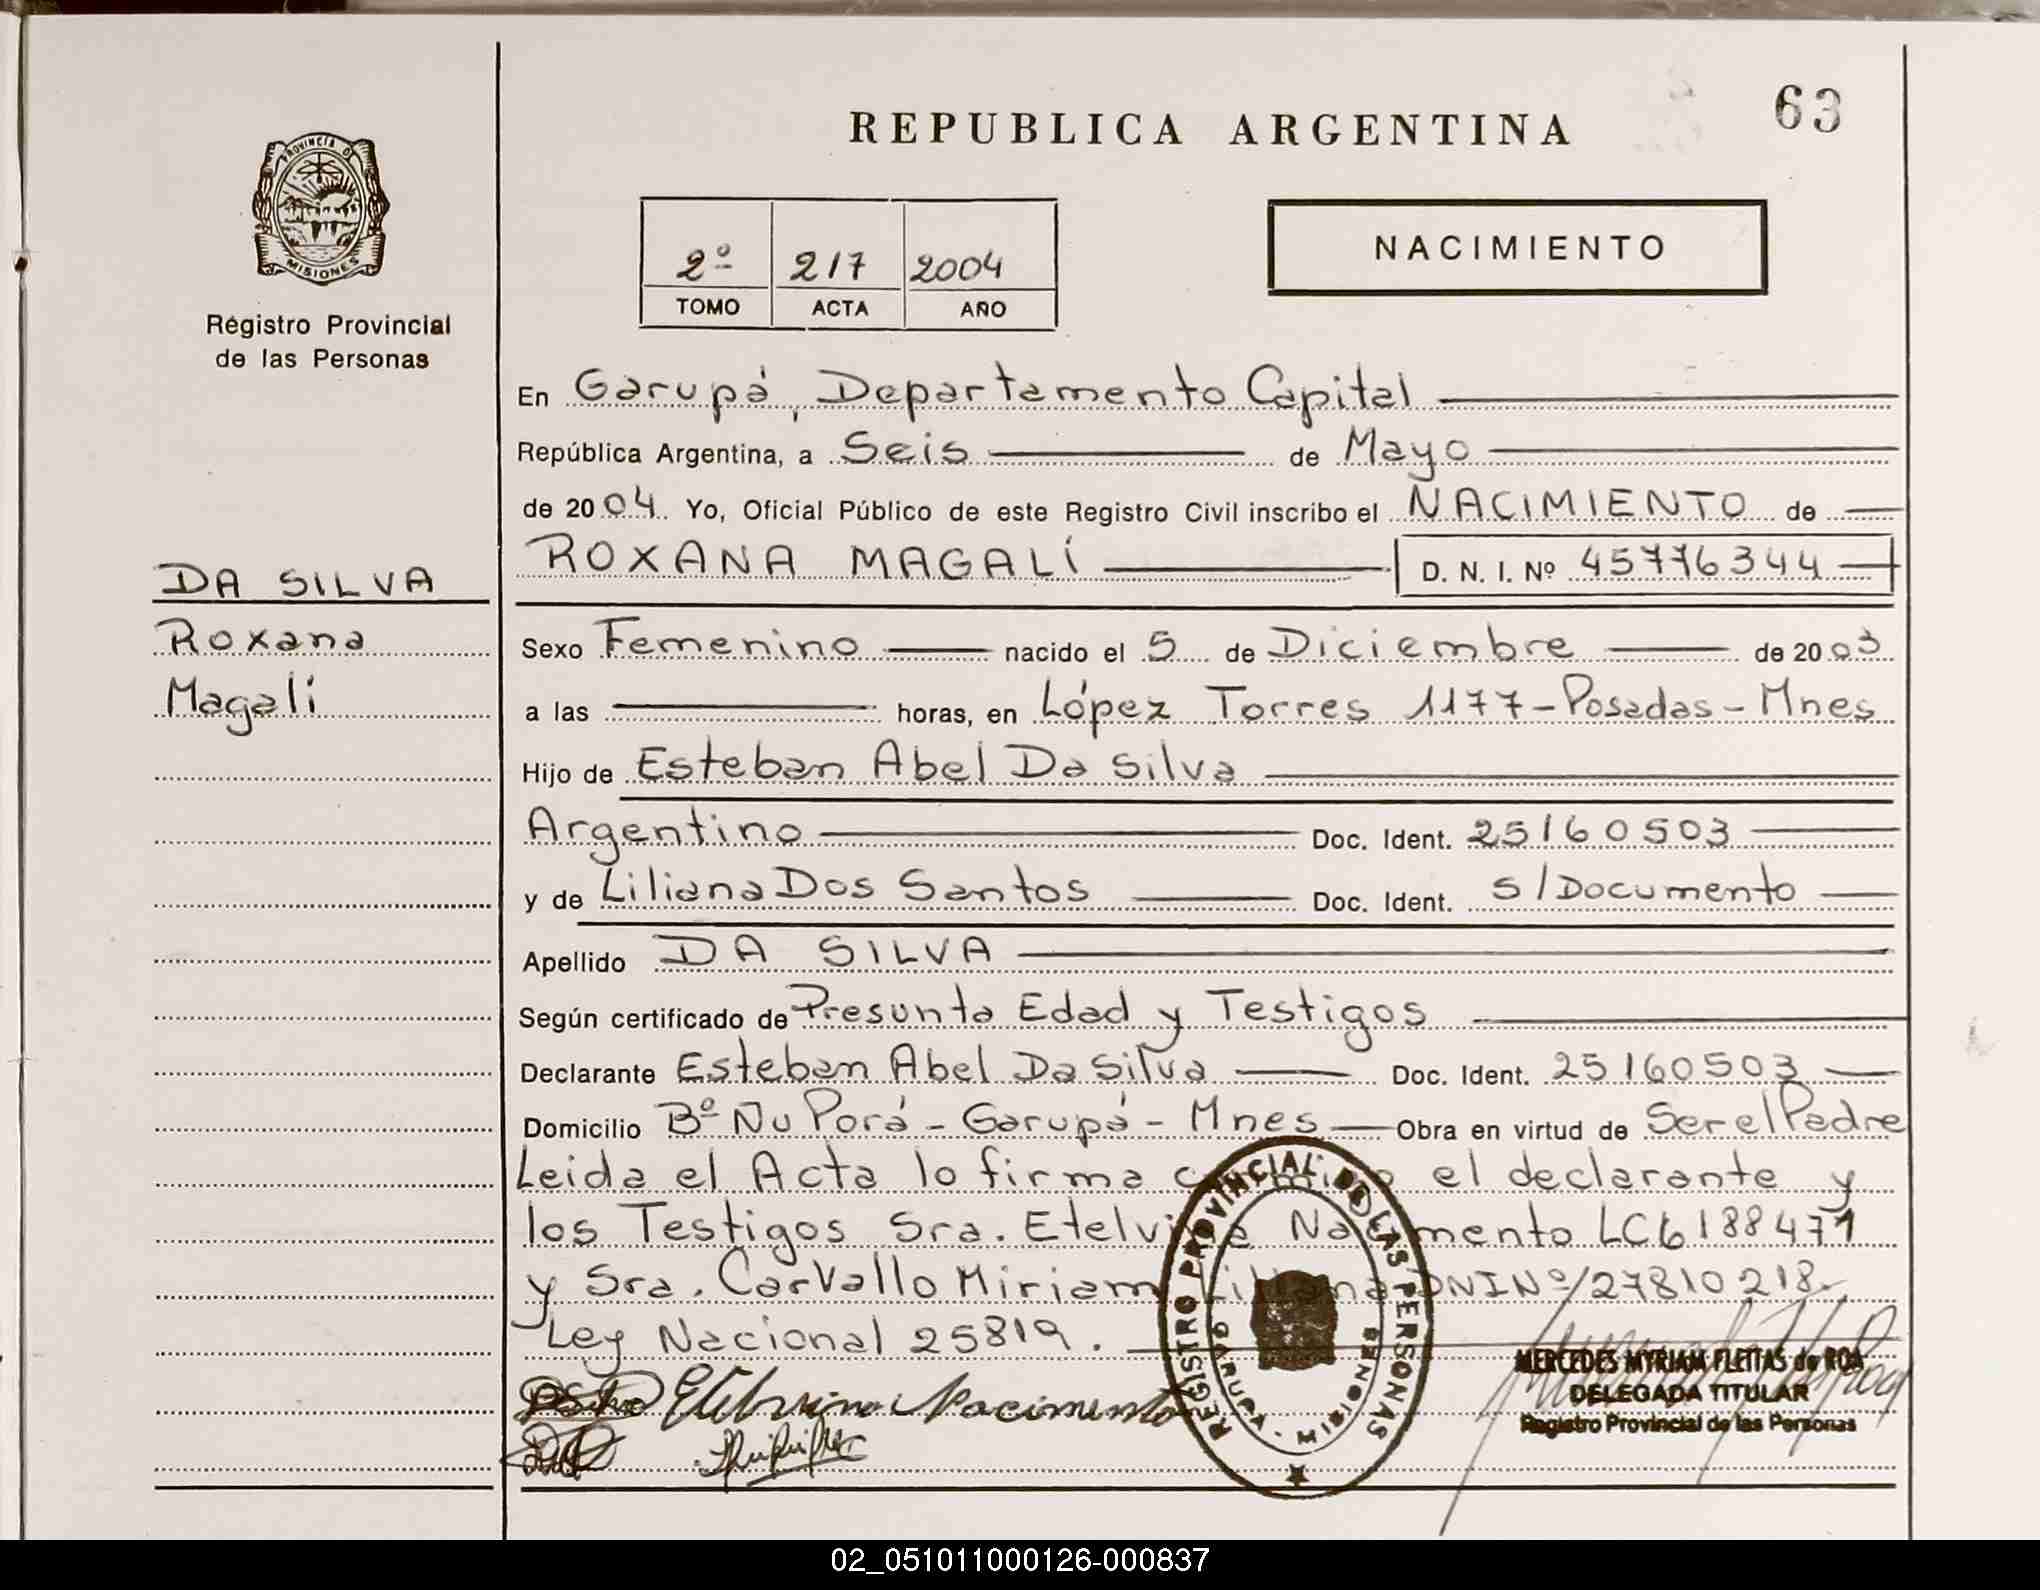 63
REPUBLICA ARGENTINA
PROVINCIA DE
MISIONES
Registro Provincial
de las Personas
2º 217 2004
TOMO ACTA AÑO
NACIMIENTO
En Garupá, Departamento Capital
República Argentina, a Seis de Mayo
de 2004. Yo, Oficial Público de este Registro Civil inscribo el NACIMIENTO de
ROXANA MAGALÍ D. N. I. Nº 45776344
DA SILVA
Roxana
Magalí
Sexo Femenino nacido el 5 de Diciembre de 2003
a las horas, en López Torres 1177-Posadas-Mnes
Hijo de Esteban Abel Da Silva
Argentino Doc. Ident. 25160503
y de Liliana Dos Santos Doc. Ident. S/Documento
Apellido DA SILVA
Según certificado de Presunta Edad y Testigos
Declarante Esteban Abel Da Silva Doc. Ident. 25160503
Domicilio Bº Ñu Porá - Garupá - Mnes Obra en virtud de Ser el Padre
Leida el Acta lo firma el declarante y
los Testigos Sra. Etelvina Nacimento LC6188471
y Sra. Carvallo Miriam Liliana DNI Nº 27810218
Ley Nacional 25819.
Etelvina Nacimento
REGISTRO PROVINCIAL DE LAS PERSONAS
GARUPA - MISIONES
MERCEDES MYRIAM FLEITAS de ROA
DELEGADA TITULAR
Registro Provincial de las Personas
02_051011000126-000837